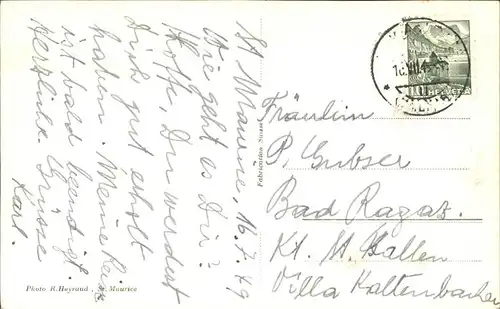 St Maurice, 16.7.49
Wie geht es Dir?
Hoffe, Du werdest
Dich gut erholt
haben. Meine Reise
ist bald beendigt.
Herzliche Grüsse
Karl.
Fabrication Suisse
HELVETIA
Fräulein
P. Gubser
Bad Ragaz.
Kt. St. Gallen
Villa Kaltenbacher
Photo R. Heyraud, St. Maurice